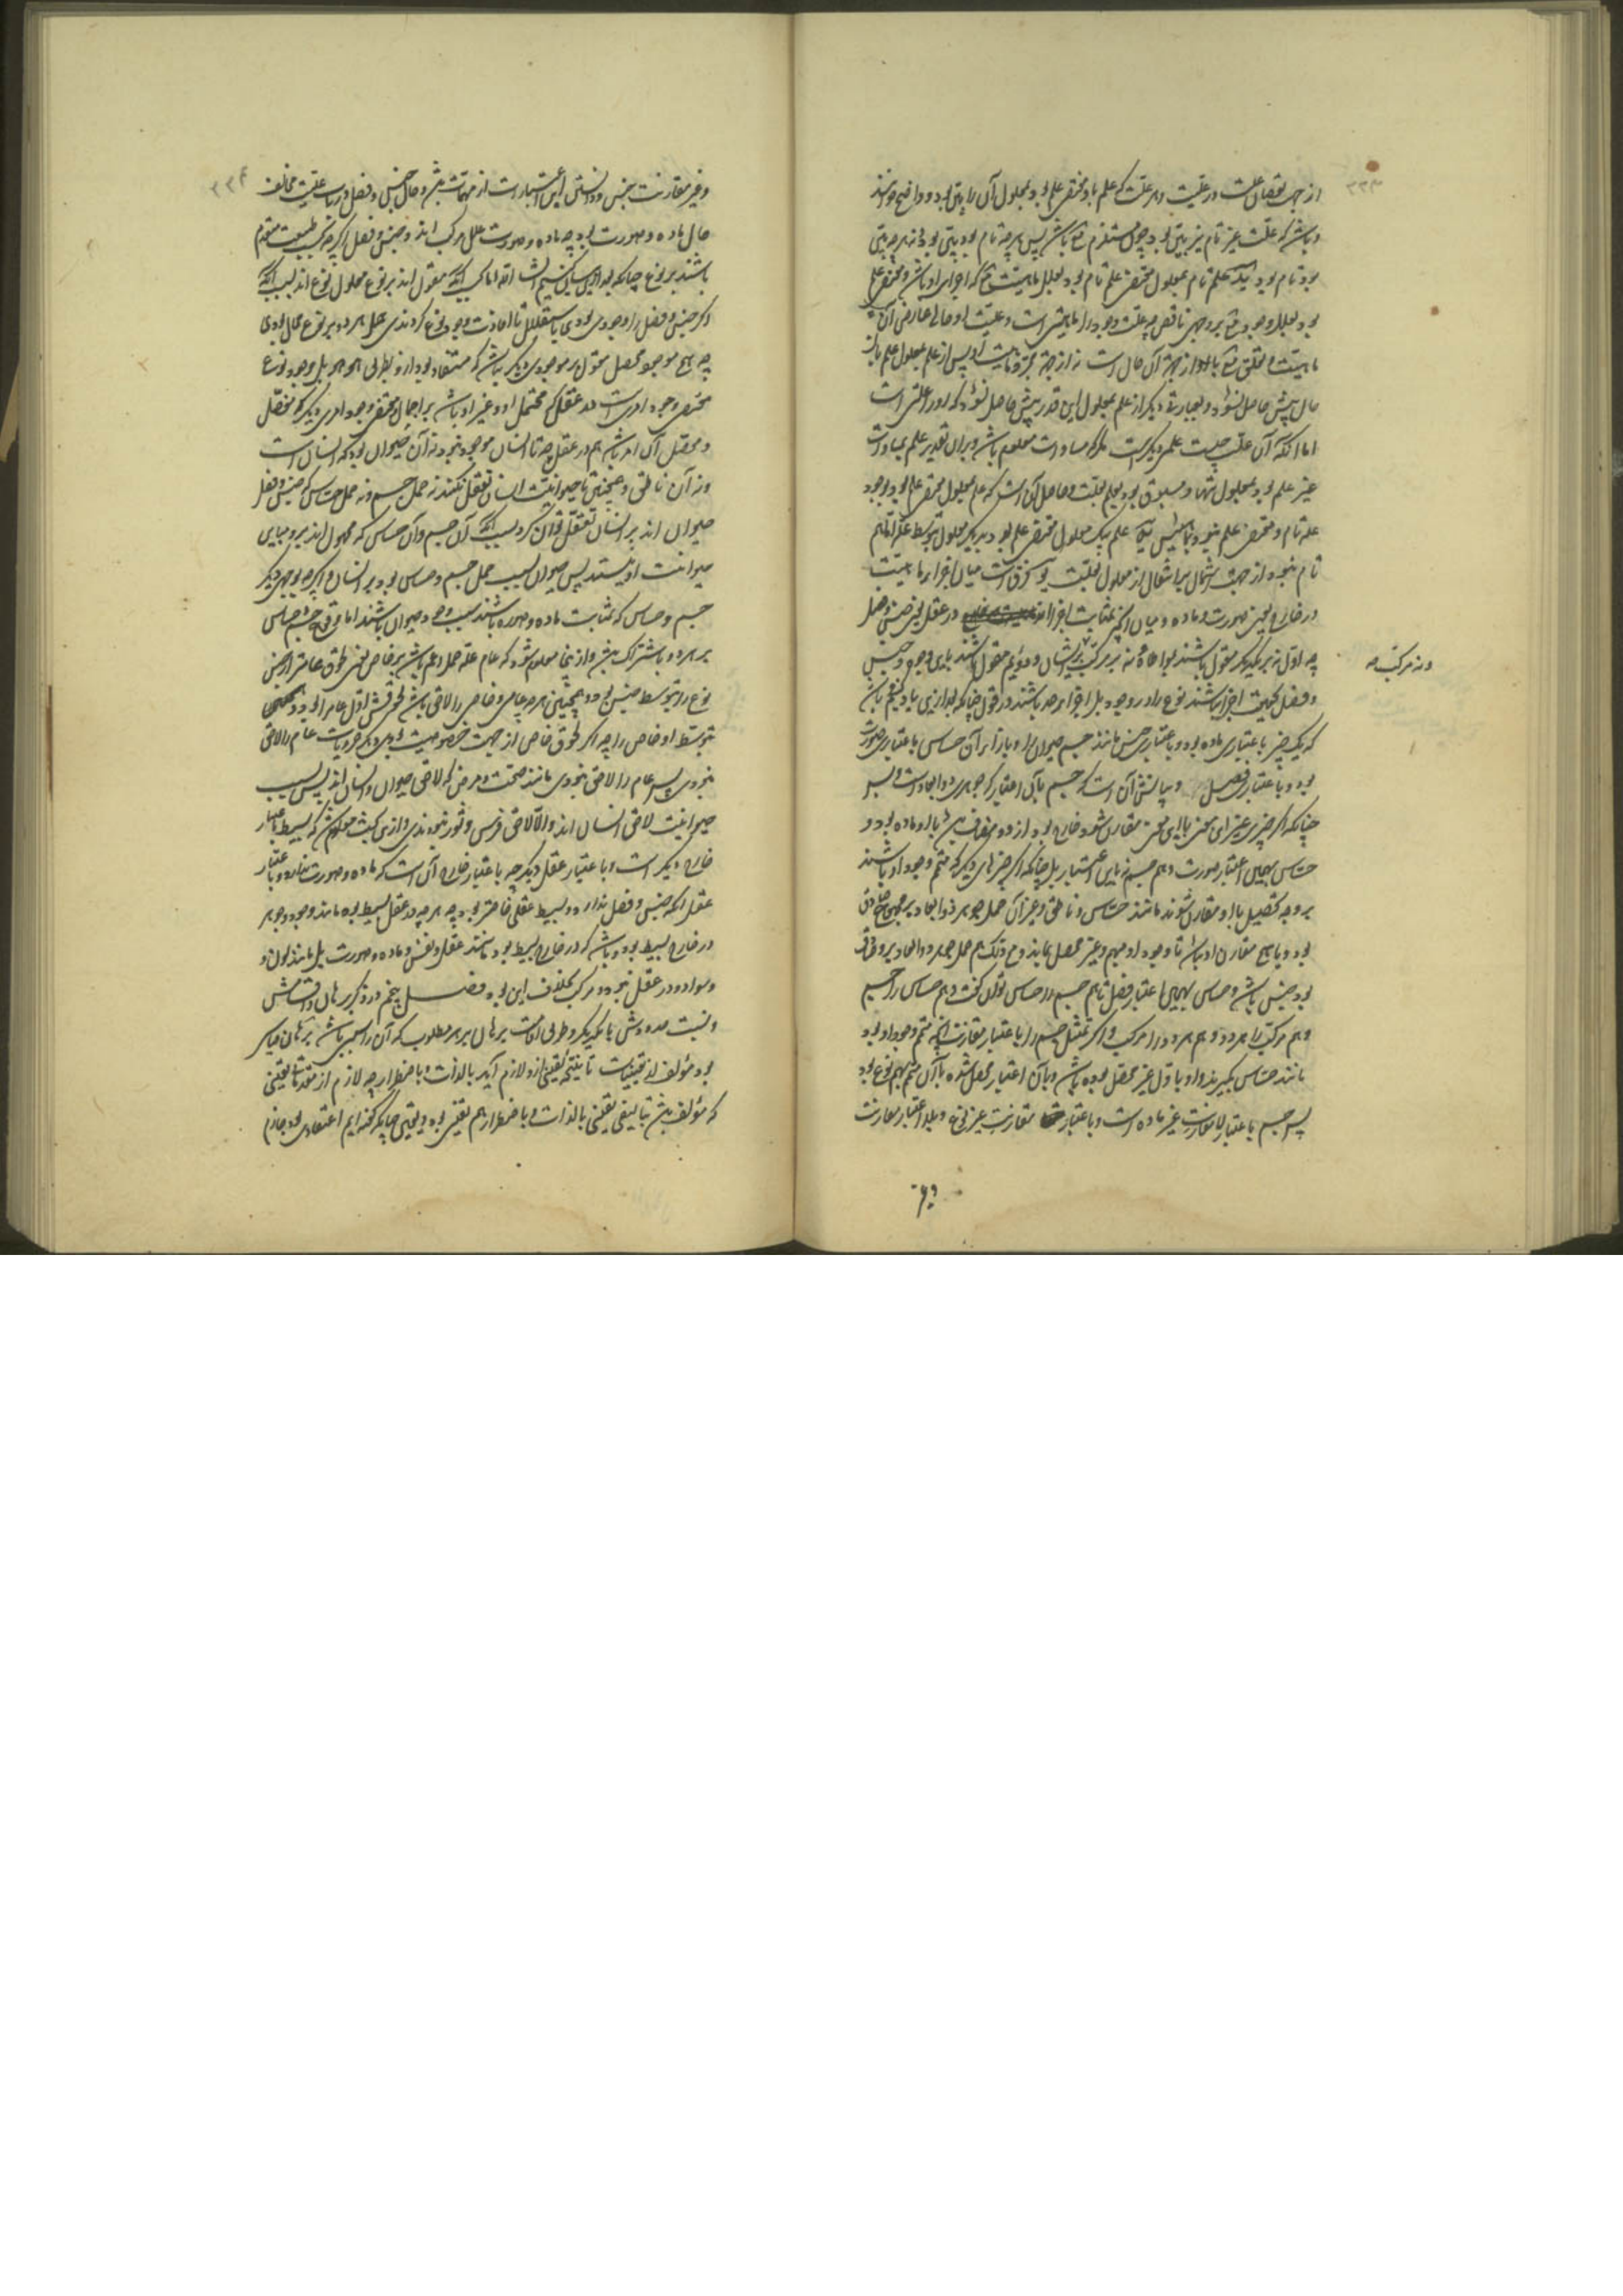 ۳۳۳
از جهت نقصان علت در علیت و هر علت که علم باو مقتضی علم بود بمعلول آن را یقینی بود و واضح خوانند
و باشد که علت غیر تام نیز یقینی بود چون مستلزم باشد پس هرچه تام بود یقینی بود و نه هرچه یقینی
بود تام بود علم تام بمعلول مقتضی علم تام بود بعلل ماهیت که اجزای او باشد و مقتضی علم
بود بعلل وجود بر وجهی ناقص چه علت وجود را ماهیتی است و علیت او حالی عارض آن
ماهیت و تعلق باو از جهت آن حال است نه از جهت مجرد ماهیت او پس از علم بمعلول علم بآن
حال بیش حاصل نشود و بعبارتی دیگر از علم بمعلول این قدر بیش حاصل نشود که او را علتی است
اما آنکه آن علت چیست علمی دیگر است مگر که مساوات معلوم باشد و بر آن تقدیر علم بمساوات
غیر علم بود بمعلول تنها و مسبوق بود بعلم بعلت و حاصل آن است که علم بمعلول مقتضی علم بود بوجود
علم تام و مقتضی علم نبود علم بیک معلول مقتضی علم بود بدیگر معلول بتوسط علت اما هم
تام نبود از جهت اشتمال بر انتقال از معلول بعلت فرق است میان اجزاء ماهیت
در خارج یعنی صورت و ماده و میان آنچه بمثابت اجزا اند در عقل یعنی جنس و فصل
چه اول نه بر یکدیگر مقول باشند بمواطاة نه بر مرکب ازیشان و دوم مقول باشند باین وجوه و جنس
ونه مرکب صح
و فصل بحقیقت اجزا نباشند نوع را در وجود بل اجزاء حد باشند در قول چنانکه بعد ازین یاد کنیم باشد
که یک چیز باعتباری ماده بود و باعتباری جنس مانند جسم حیوان را و بازاء آن حساس باعتباری صورت
بود و باعتباری فصل و بیانش آن است که جسم بآن اعتبار که جوهری ذو ابعاد است و بس
چنانکه اگر چیزی غیر این معنی با این معنی مقارن شود خارج بود ازو و مضاف باو ماده بود و
حساس بهمین اعتبار صورت و هم جسم نه باین اعتبار بل چنانکه اگر چیزهای دیگر که متمم وجود او باشند
بر وجه تحصیل باو مقارن شوند مانند حساس و ناطق و غیر آن حمل جوهر ذو ابعاد بر مجموع صادق
بود و یا هیچ مقارن او نباشد تا وجود او مبهم و غیر محصل بماند و مع ذلک هم حمل جوهر ذو ابعاد برو صادق
بود جنس باشد و حساس بهمین اعتبار فصل تا هم جسم را حساس توان گفت و هم حساس را جسم
و هم مرکب را هر دو و هم هر دو را مرکب و اگر بمثل جسم را باعتبار مقارنت آنچه متمم وجود او بود
مانند حساس بگیرند و او باول غیر محصل بوده باشد و بآن اعتبار محصل شده با آن متمم بهم نوع بود
پس جسم باعتبار لا مقارنت غیر ماده است و باعتبار مقارنت غیر نوع و بلا اعتبار مقارنت
و غیر
۳۳۴
و غیر مقارنت جنس و دانستن این اعتبارات از مهمات باشد و حال جنس و فصل در باب علیت مخالف
حال ماده و صورت بود چه ماده و صورت علل مرکب اند و جنس و فصل اگرچه بطبیعت متقدم
باشند بر نوع چنانکه بعد ازین بیان کنیم انشاء الله اما بسبب آنکه مقول اند بر نوع معلول نوع اند بسبب آنکه
اگر جنس و فصل را وجودی بودی باستقلال تا افادت وجود نوع کردندی حمل هر دو بر نوع محال بودی
چه هیچ موجود محصل مقول بر موجودی دیگر نباشد که مستفاد بود ازو بطریق هو هو بل وجود نوع
مقتضی وجود امری است در عقل که محتمل او و غیر او باشد بر اجمال و مقتضی وجود امری دیگر که مخصص
و محصل آن امر باشد هم در عقل چه تا انسان موجود نبود نه آن حیوان بود که انسان است
و نه آن ناطق و همچنین تا حیوانیت انسان تعقل نکنند نه حمل جسم و نه حمل حساس که جنس و فصل
حیوان اند بر انسان تعقل توان کرد بسبب آنکه آن جسم و آن حساس که محمول اند برو مباین
حیوانیت او نیستند پس حیوان سبب حمل جسم و حساس بود بر انسان و اگرچه بوجهی دیگر
جسم و حساس که بمثابت ماده و صورت باشند سبب وجود حیوان باشند اما وقوع جسم و حساس
بر هر دو باشتراک باشد و ازینجا معلوم شود که عام علت حمل اعم باشد بر خاص یعنی لحوق عامتر از جنس
نوع را بتوسط جنس بود و همچنین هرچه عام و خاص را لاحق باشد لحوقش اول عام را بود و
بتوسط او خاص را چه اگر لحوق خاص از جهت خصوصیت بودی دیگر جزویات عام را لاحق
نبودی پس عام را لاحق نبودی مانند صحت و مرض که لاحق حیوان و انسان اند پس بسبب
حیوانیت لاحق انسان اند والا لاحق فرس و ثور نبودندی و ازین بحث معلوم شد که بسیط باعتبار
خارج دیگر است و باعتبار عقل دیگر چه باعتبار خارج آن است که ماده و صورت ندارد و باعتبار
عقل آنکه جنس و فصل ندارد و بسیط عقلی خاصتر بود چه هرچه در عقل بسیط بود مانند وجود و جوهر
در خارج بسیط بود و باشد که در خارج بسیط بود مانند عقل و نفس و ماده و صورت بل مانند لون و
و سواد و در عقل نبود و مرکب بخلاف این بود فصل پنجم در ذکر برهان و اقسامش
و نسبت حدودش با یکدیگر و طریق اقامت برهان بر هر مطلوب که آن را سببی باشد برهان قیاسی
بود مؤلف از یقینیات تا نتیجه یقینی ازو لازم آید بالذات و باضطرار چه لازم از مقدمات یقینی
که مؤلف باشد بتألیفی یقینی بالذات و باضطرار هم یقینی بود و یقین چنانکه گفته ایم اعتقادی بود جازم